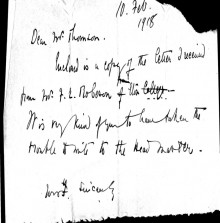 10. Feb.
1918
Dear Mr Thomson.
Inclosed is a copy of the letter I received
from Mr F. L. Robinson of this College.
It is very kind of you to have taken the
trouble to write to the Head Master.
Yours sincerely